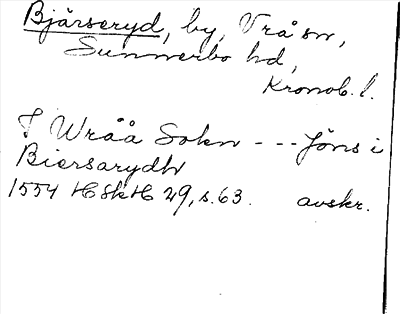 Bjärseryd, by, Vrå sn,
Sunnerbo hd,
Kronob. l.
J Wråå Sokn --- Jöns i
Biersarydh
1554 HSkH 29, s. 63. avskr.